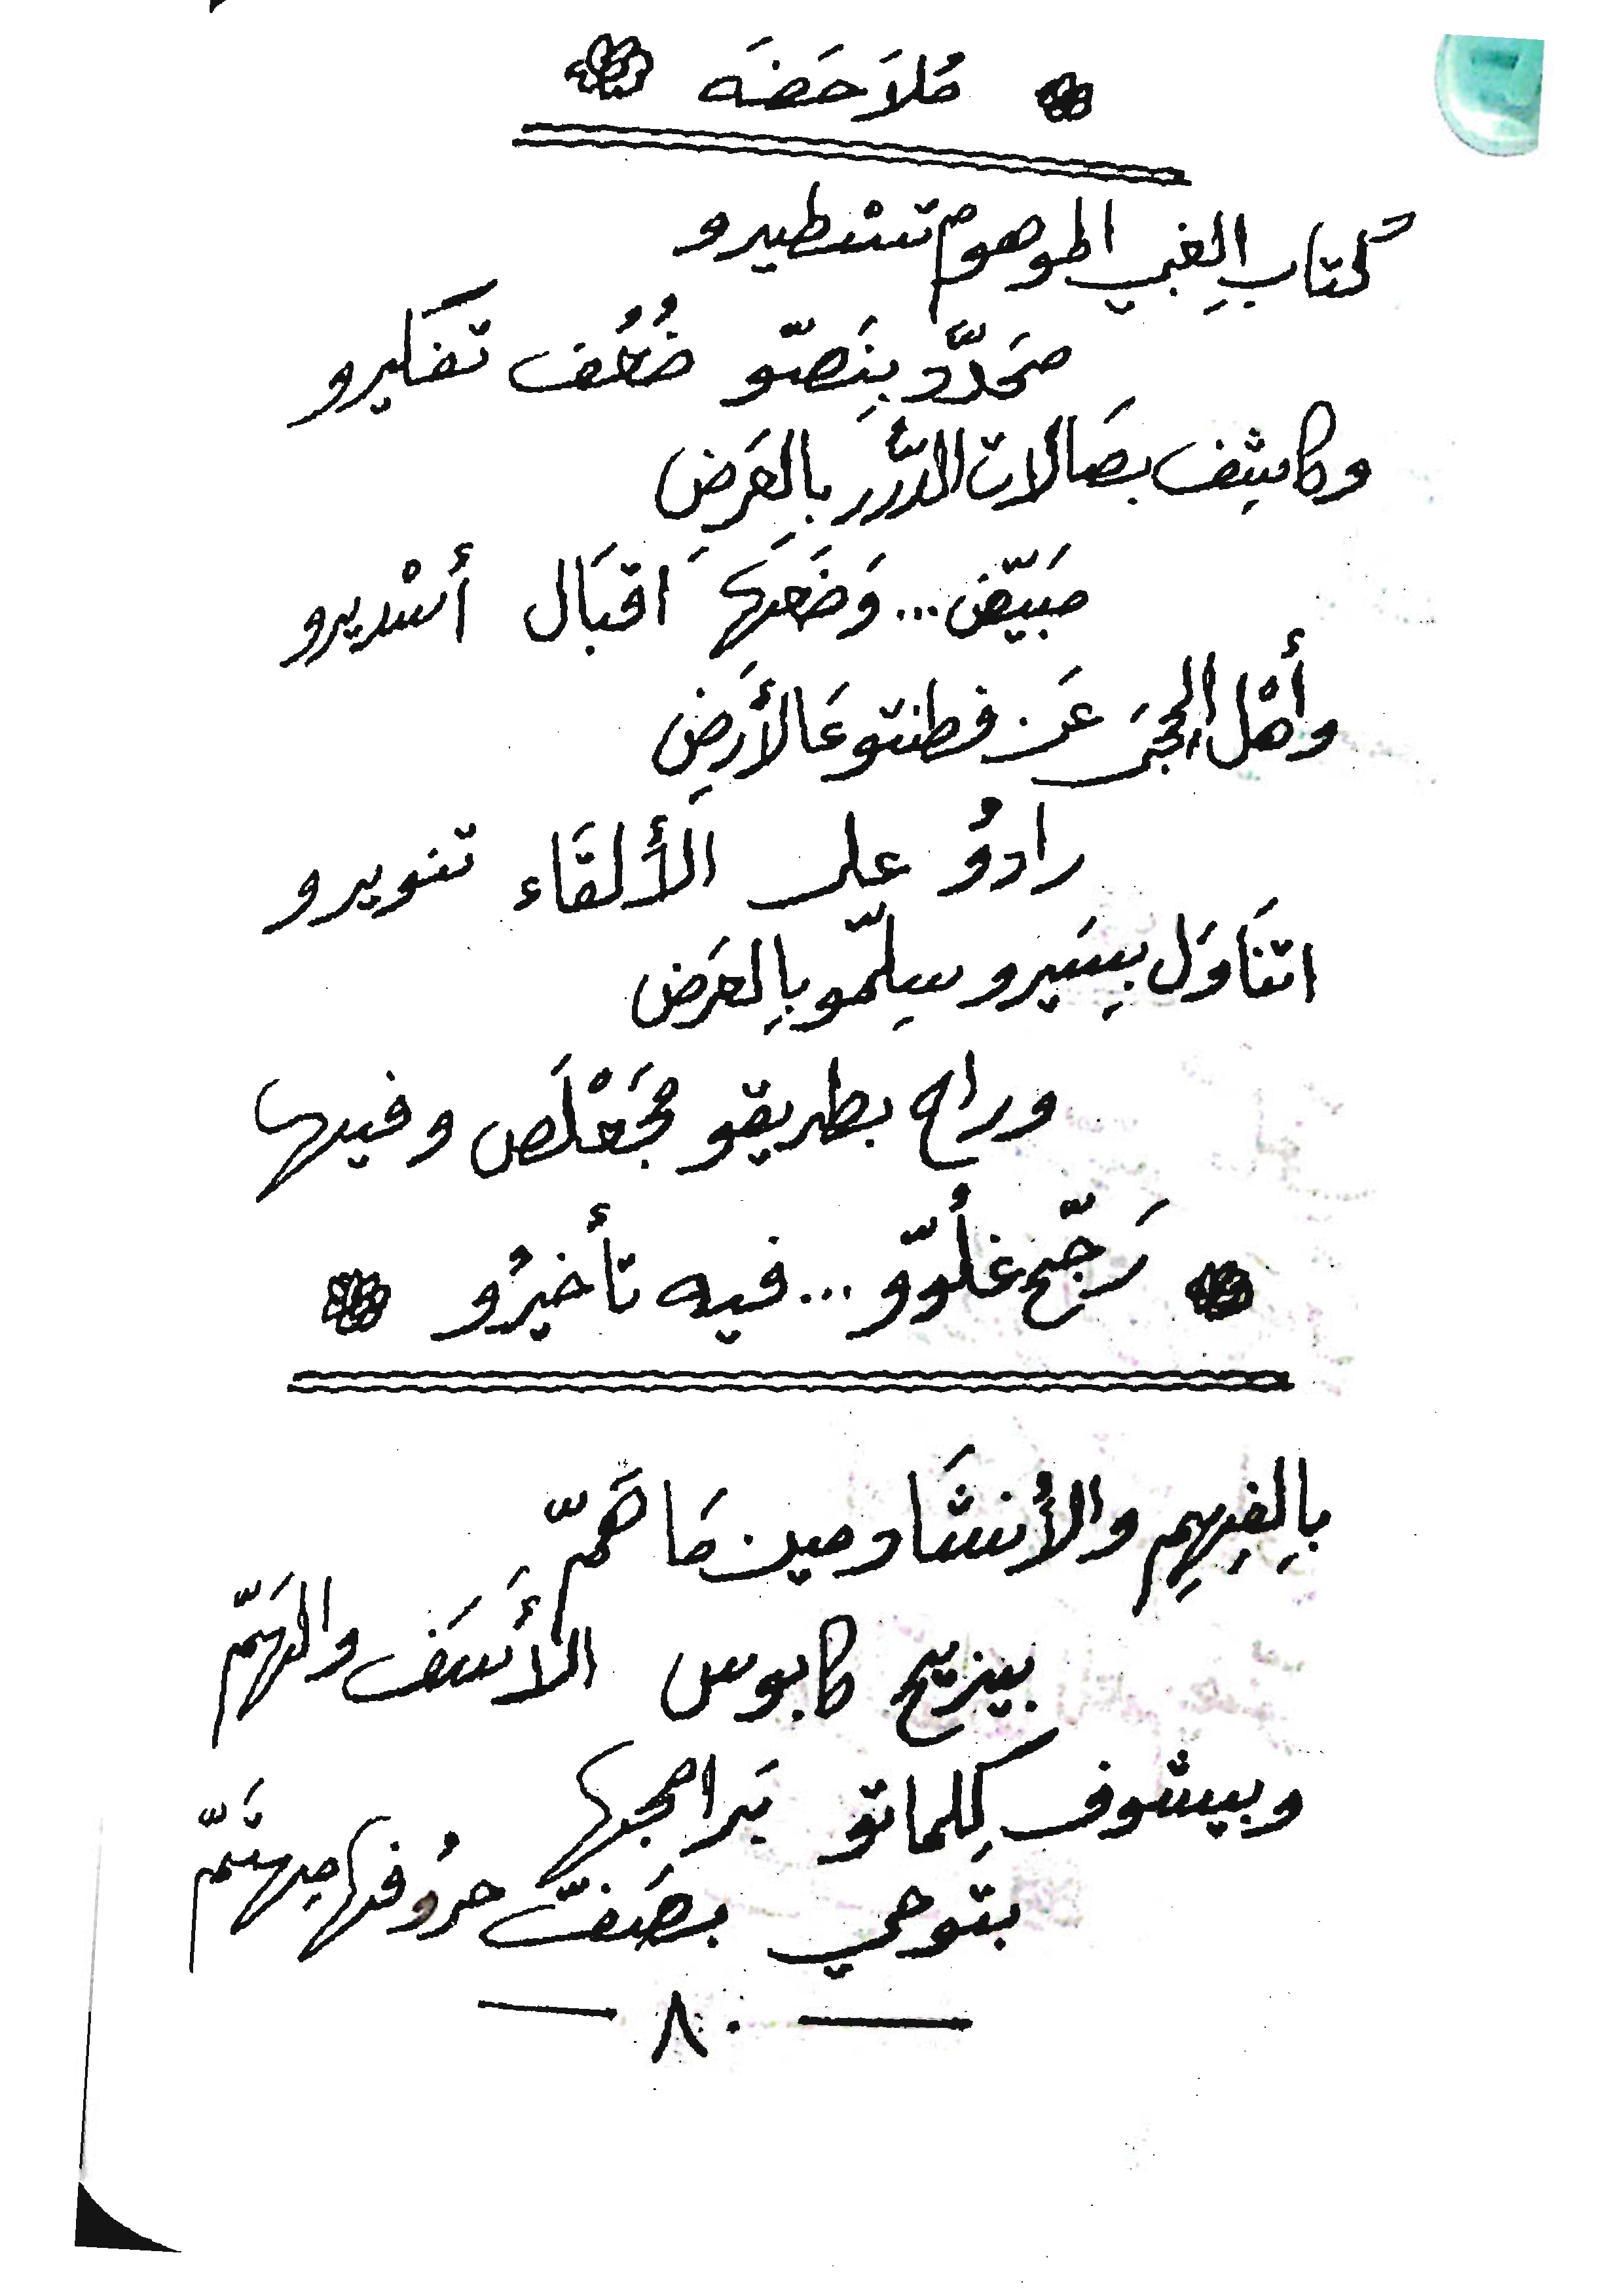 مُلاَحَضَه
كتابِ الغبي الموهوم تسْطيرو
محَدَّد بِنَصّو ضُعُف تفكيرو
وكاشِف بصَالات الدُّرر بِالعَرَض
مَبَيّض... وَضَعَهَا اقبَال أسْديرو
وأهْل الحِجَى عَن فطنتو عَالأرَضِ
رادوُ على الألقَاء تنويرو
اتنَاوَل بِسَيرو سِلّمو بِالعَرَض
وراح بطريقو مجَعْلَص وفيها
رَجّح غلُوّو... فيه تأخيرُو
بِالفِهِم والأنشَاد مين مَا هَمّ
بيزيح كابوس الأَسَف والهَمّ
وبيشوف كِلماتو بَرامجها
بتوحي بصَفّ حرُوفها مِهتَمّ
٨٠